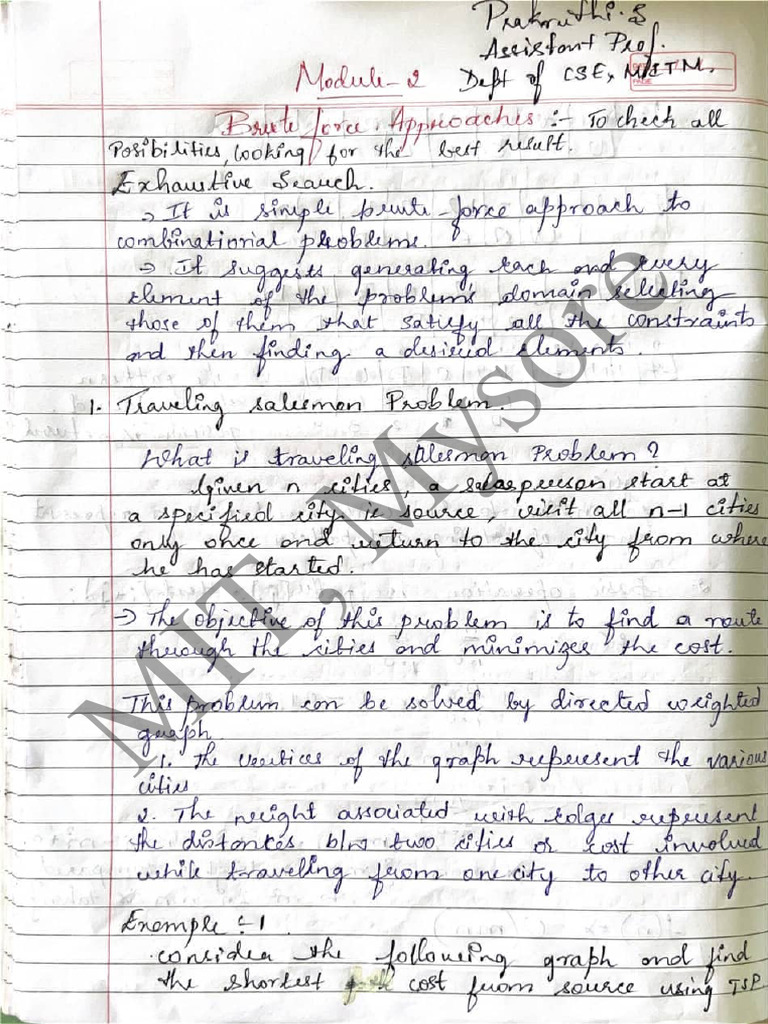 Prakruthi.S
Assistant Prof.
Module-2 Dept of CSE, MITM.
Brute force Approaches :- To check all
Posibilities, looking for the best result.
Exhaustive Search.
⇒ It is simple brute-force approach to
combinatiorial problems.
⇒ It suggests generating each and every
element of the problem's domain selecting
those of them that satisfy all the constraints
and then finding a desired elements.
1. Traveling salesman Problem.
What is traveling salesman Problem?
Given n cities, a salesperson start at
a specified city ie source, visit all n-1 cities
only once and return to the city from where
he has started.
⇒ The objective of this problem is to find a route
through the cities and minimizes the cost.
This problem can be solved by directed weighted
graph.
1. The vertices of the graph represent the various
cities
2. The weight associated with edges represent
the distances b/w two cities or cost involved
while traveling from one city to other city.
Example :- 1
consider the following graph and find
the shortest cost from source using TSP
MIT, Mysore